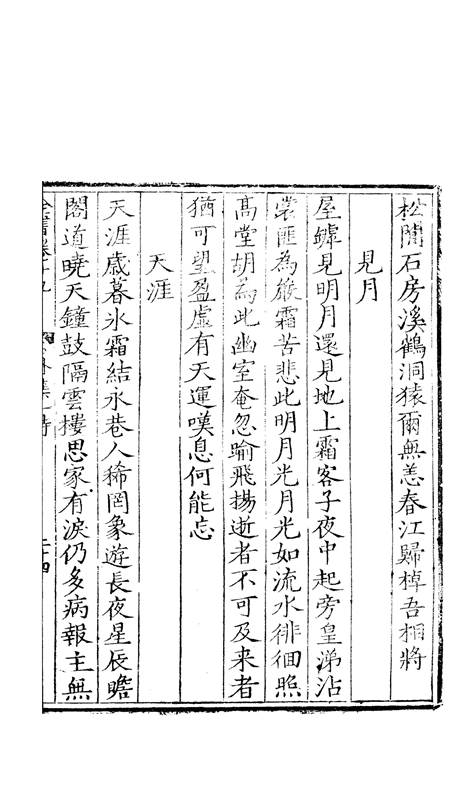 松間石房溪鶴洞猿爾無恙春江歸棹吾相將
見月
屋罅見明月還見地上霜客子夜中起旁皇涕沾
裳匪為嚴霜苦悲此明月光月光如流水徘徊照
高堂胡為此幽室奄忽踰飛揚逝者不可及来者
猶可望盈虛有天運嘆息何能忘
天涯
天涯歲暮氷霜結永巷人稀罔象遊長夜星辰瞻
閣道曉天鐘鼓隔雲樓思家有淚仍多病報主無
全書卷十九 外集一 詩 二十四